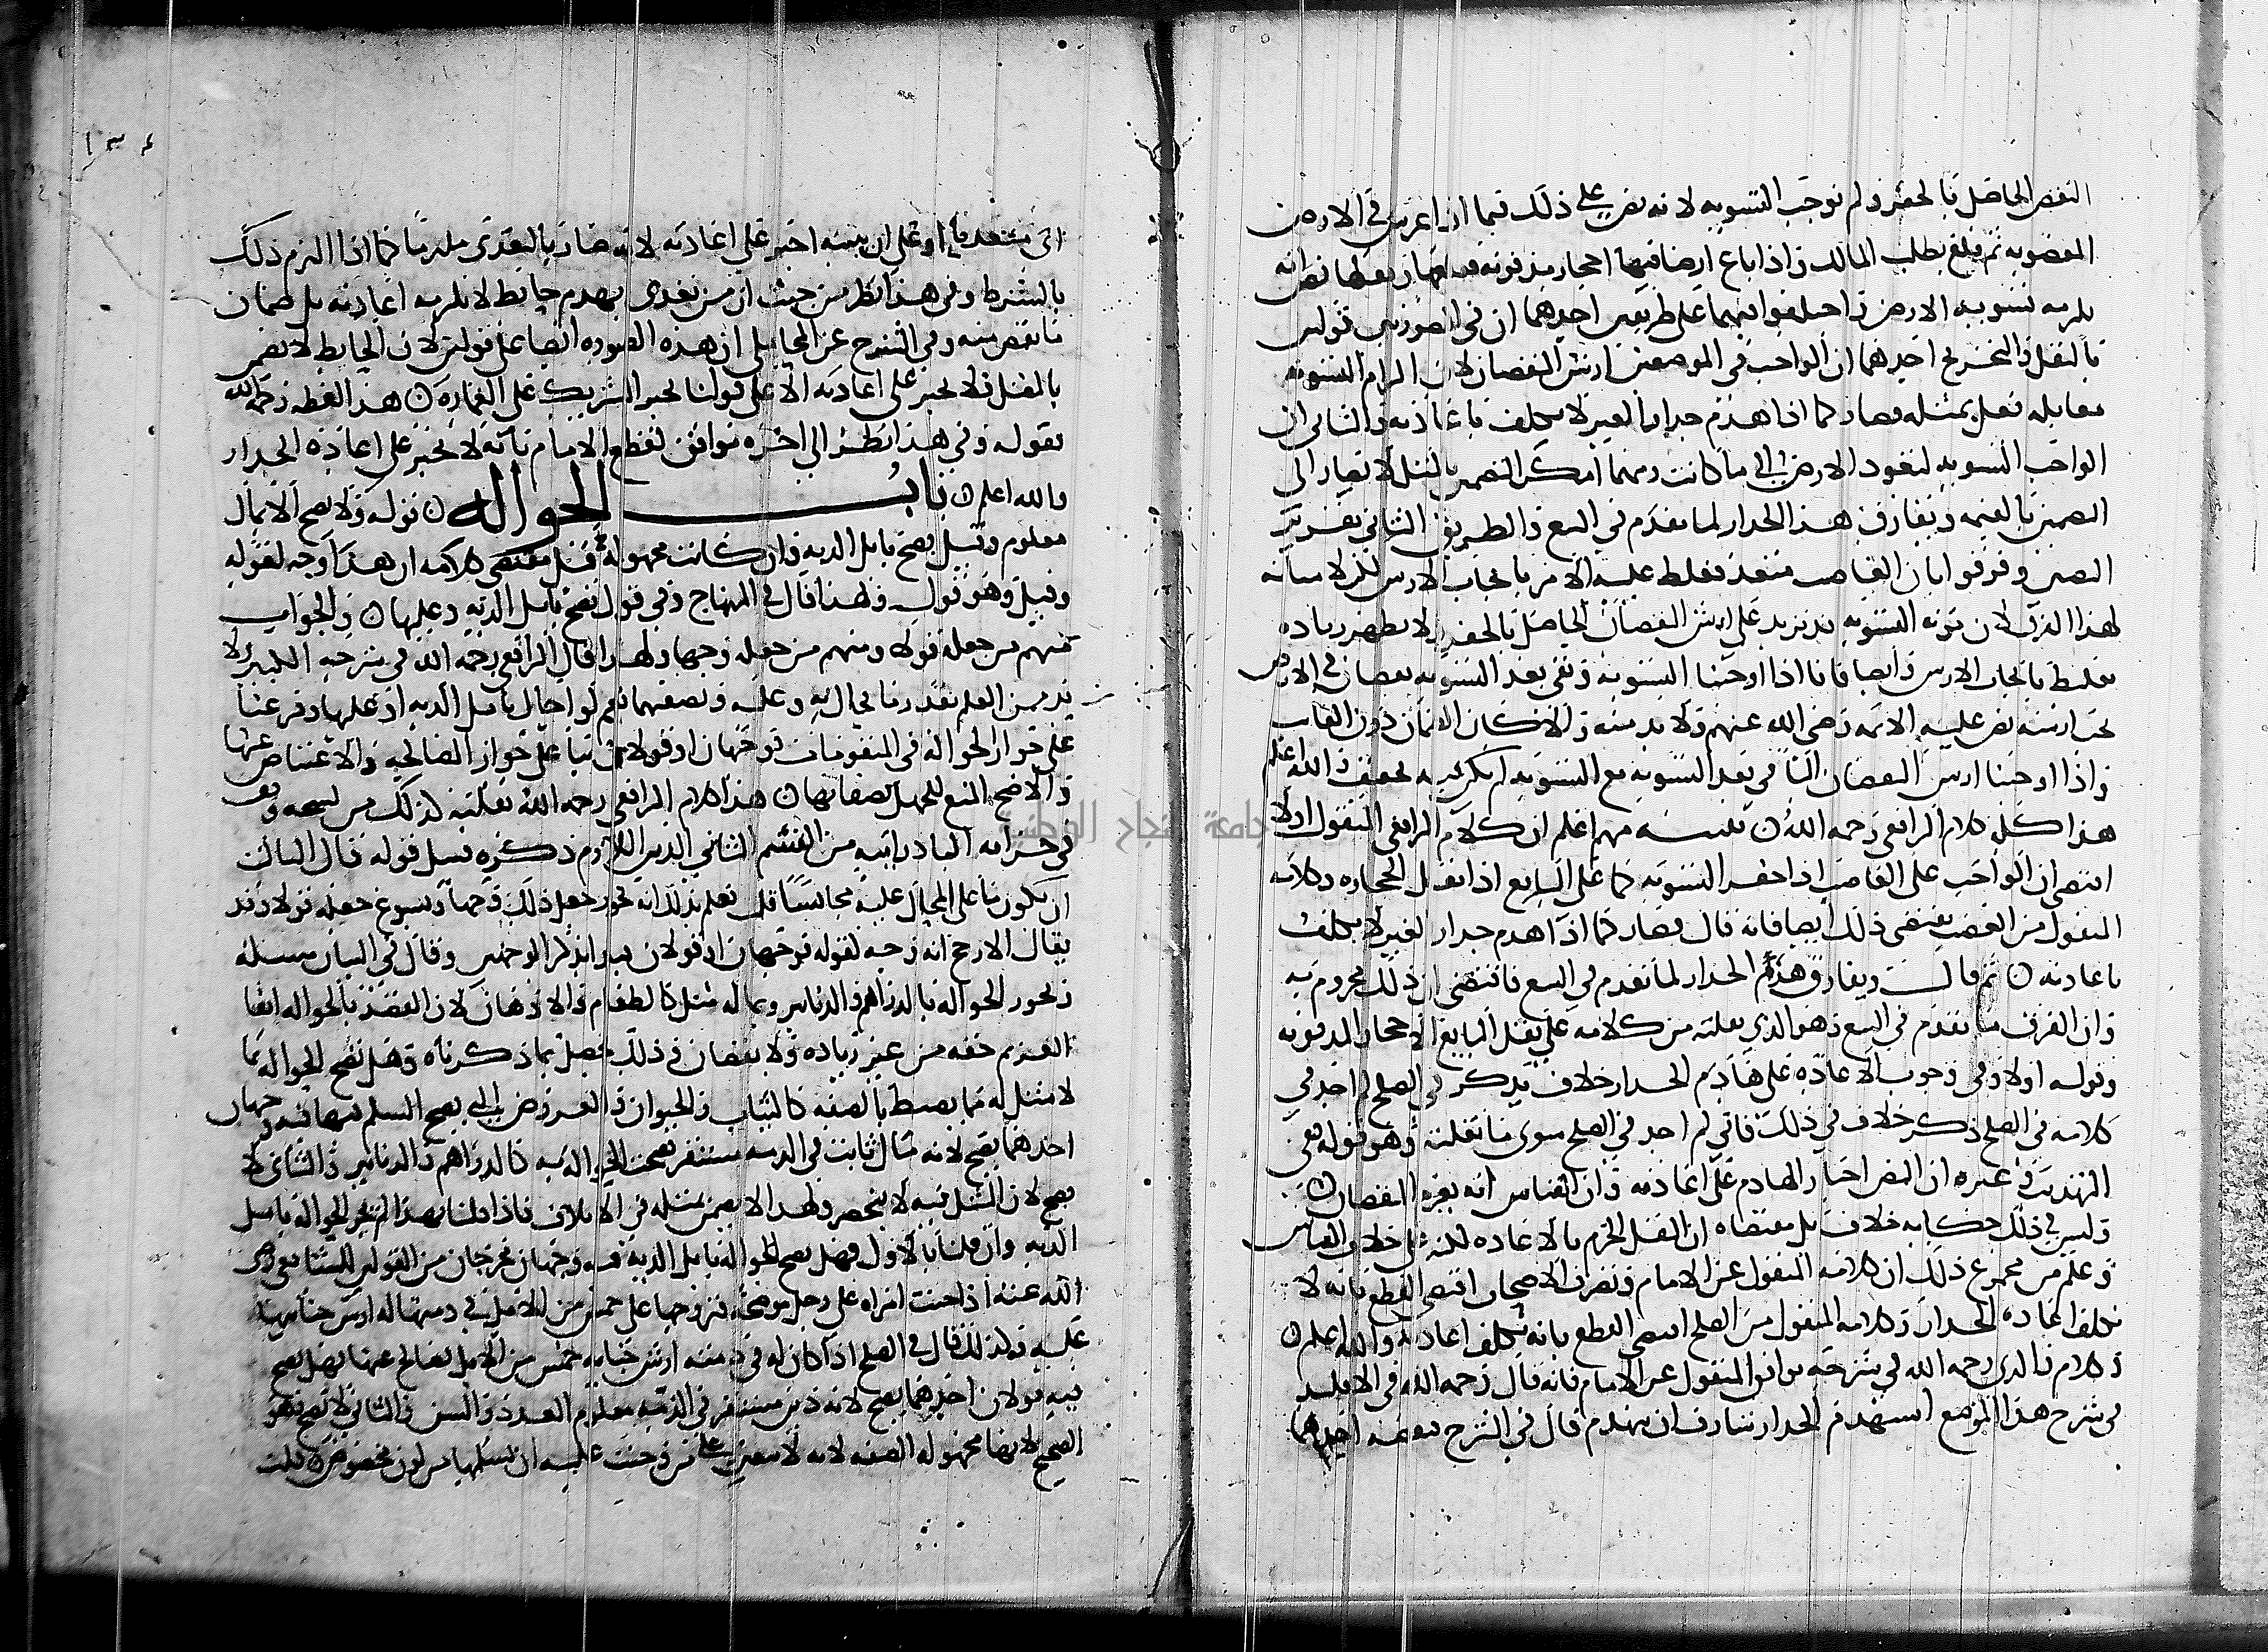 النقص الحاصل بالحفر ولم نوجب التسويه لانه نص على ذلك فيما اذا غرس في الارض
المغصوبه ثم قلع بطلب المالك واذا باع ارضا فيها احجار مدفونه نص انه
يلزمه تسويه الارض على طريقين احدهما ان في الصورتين قولين
بالنقل والتخريج احدهما ان الواجب في الموضعين ارش النقصان لان الزام التسويه
مقابله فعل بمثله فصار كما اذا هدم جدار الغير لا يكلف باعادته والثاني ان
الواجب التسويه لتعود الارض الى ما كانت ومهما امكن التضمين بالمثل لا يصار الى
التضمين بالقيمه ويفارق هذا الجدار لما تقدم في البيع والطريق الثاني تقرير
النصين وفرقوا بان الغاصب متعد فغلط عليه الامر بايجاب الارش
لهذا لان مؤنه التسويه قد تزيد على ارش النقصان الحاصل بالحفر
بايجاب الارش وايضا فانا اذا اوجبنا التسويه وبقي بعد التسويه نقصان في الارض
يجب ارشه نص عليه الائمه رضي الله عنهم ولا بد منه والا لكان الضمان دون الفائت
واذا اوجبنا ارش النقصان الباقي بعد التسويه مع التسويه لم يكن فيه تخفيف والله اعلم
هذا كله كلام الرافعي رحمه الله ن اعلم ان كلام الرافعي المنقول اولا
اقتضى ان الواجب على الغاصب اذا حفر التسويه كما على البايع اذا نقل الحجاره وكلامه
المنقول من الغصب يقتضي ذلك ايضا فانه قال فصار كما اذا هدم جدار الغير لا يكلف
باعادته ن ثم قال ويفارق هدم الجدار لما تقدم في البيع فاقتضى ان ذلك مجزوم به
وان الفرق ما تقدم في البيع وهو الذي نقلته من كلامه على نقل البايع الاحجار المدفونه
وقوله اولا وفي وجوب الاعاده على هادم الجدار خلاف يذكر في الصلح لم اجد في
كلامه في الصلح ذكر خلاف في ذلك فاني لم اجد في الصلح سوى ما نقلته وهو قوله ففي
التهذيب وغيره ان النص اجبار الهادم على اعادته وان القياس انه يغرم النقصان ن
وليس في ذلك حكايه خلاف بل مقتضاه ان النقل الجزم بالاعاده لكنه على خلاف القياس
وعلم من مجموع ذلك ان كلامه المنقول عن الامام ونصرف الاصحاب اقتضى القطع بانه لا
تكلف اعاده الجدار وكلامه المنقول من الصلح اقتضى القطع بانه تكلف اعادته والله اعلم ن
وكلام والدي رحمه الله في شرحه يوافق المنقول عن الامام فانه قال رحمه الله في الاقليد
في شرح هذا الموضع استهدم الجدار شارف ان ينهدم قال في الشرح احدهما
او على ان يبنيه اجبر على اعادته لانه صار بالتعدي ملزما كما اذا التزم ذلك
بالشرط وفي هذا نظر من حيث ان من تعدى بهدم حايط لا يلزمه اعادته بل ضمان
ما نقص منه وفي الشرح عن المحاملي ان هذه الصوره ايضا على قولين لان الحايط لا يضمن
بالمثل فلا يجبر على اعادته الا على قولنا يجبر الشريك على العماره ن هذا لفظه رحمه الله
بقوله وفي هذا نظر الى اخره موافق لقطع الامام بانه لا يجبر على اعاده الجدار
والله اعلم ن باب الحواله ن قوله ولا يصح الا بمال
معلوم وقيل يصح بابل الديه وان كانت مجهوله قلت مقتضى كلامه ان هذا وجه لقوله
وقيل وهو قول ولهذا قال في المنهاج وفي قول تصح بابل الديه وعليها ن والجواب
منهم من جعله قولا ومنهم من جعله وجها ولهذا قال الرافعي رحمه الله في شرحه الكبير لا
بد من العلم بقدر ما يحال به وعليه وبصفتهما نعم لو احال بابل الديه او عليها وفرعنا
على جواز الحواله في المتقومات فوجهان او قولان بنا على جواز المصالحه والاعتياض عنها
والاصح المنع للجهل بصفاتها ن هذا كلام الرافعي رحمه الله نقلته كذلك من نسخه
في خزانه البادرائيه من القسم الثاني الدين اللازم ذكره قبل قوله قال الثالث
ان يكون ما على المحال عليه مجانسا قلت فعلم بذلك انه يجوز جعل ذلك وجها ويسوغ جعله قولا وقد
يقال الارجح انه وجه لقوله فوجهان او قولان بذكر الوجهين وقال في البيان مسله
وتجوز الحواله بالدراهم والدنانير وبما له مثل كالطعام والادهان لان القصد بالحواله ايفا
الغريم حقه من غير زياده ولا نقصان وذلك يحصل بما ذكرناه وهل تصح الحواله بما
لا مثل له مما يضبط بالصفه كالثياب والحيوان والعروض التي يصح السلم فيها فيه وجهان
احدهما يصح لانه مال ثابت في الذمه مستقر فصحت الحواله به كالدراهم والدنانير والثاني لا
يصح لان المثل فيه لا ينحصر ولهذا لا يضمن بمثله في الاتلاف فاذا قلنا بهذا لم تجز الحواله بابل
الديه وان قلنا بالاول فهل تصح الحواله بابل الديه فيه وجهان مخرجان من القولين للشافعي رضي
الله عنه اذا جنت امراه على رجل موضحه فتزوجها على خمس من الابل في ذمتها له ارش جنايتها
عليه وكذلك قال في الصلح اذا كان له في ذمته ارش جنايه خمس من الابل فصالح عنها فهل يصح
فيه قولان احدهما يصح لانه دين مستقر في الذمه معلوم العدد والسن والثاني لا تصح وهو
الصحيح لانها مجهوله الصفه لانه لا يتعين على من وجبت عليه ان يسلمها من لون مخصوص ن قلت